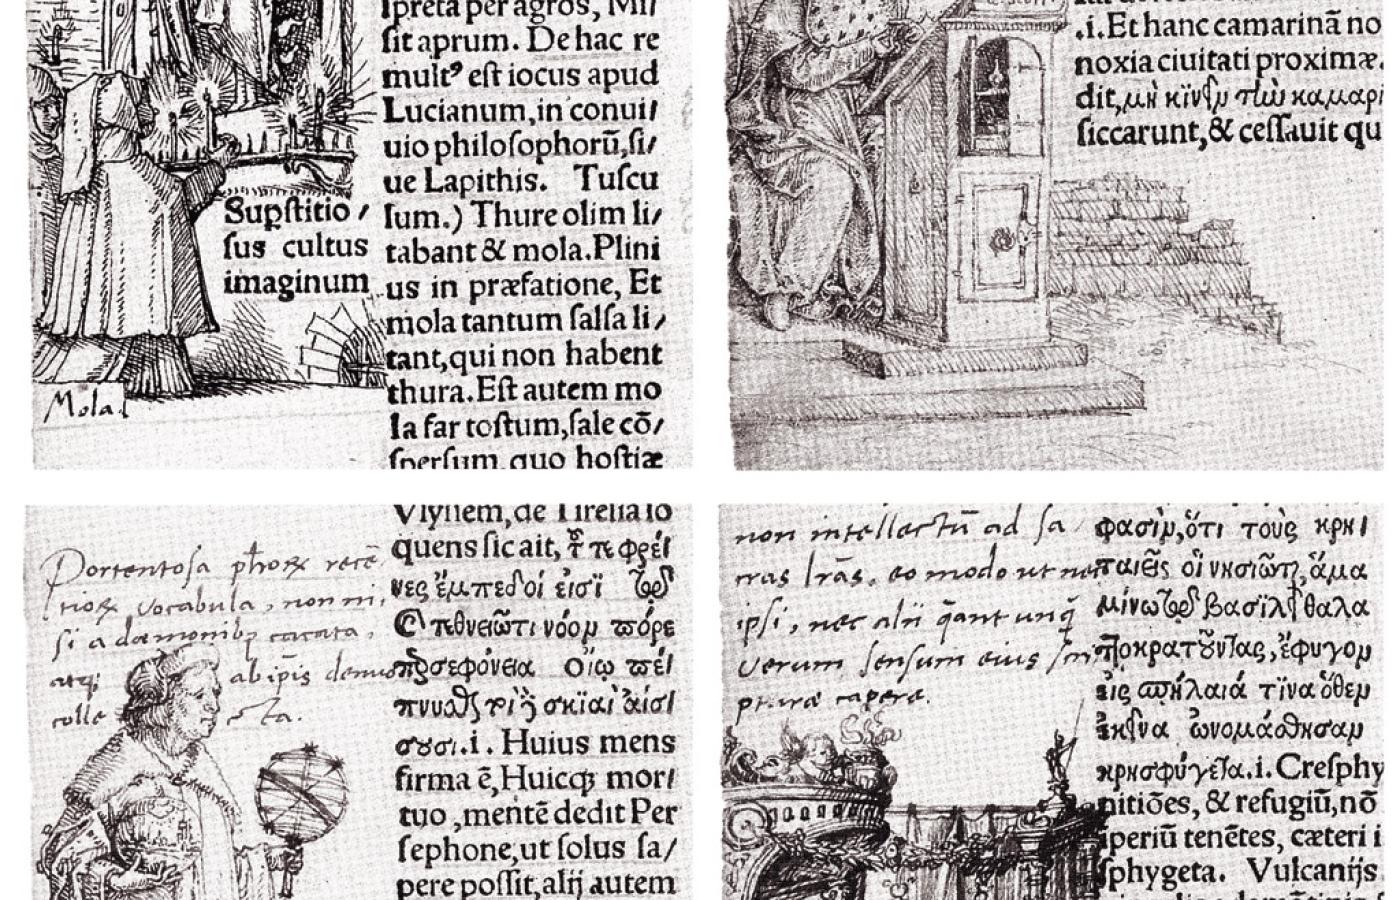 lpreta per agros, Mi/
sit aprum. De hac re
multꝰ est iocus apud
Lucianum, in conui/
uio philosophorū, si/
ue Lapithis. Tuscu
lum.) Thure olim li/
tabant & mola. Plini
us in præfatione, Et
mola tantum salsa li/
tant, qui non habent
thura. Est autem mo
la far tostum, sale cō/
spersum, quo hostiæ
Supstitio/
sus cultus
imaginum
Mola.
.i. Et hanc camarinā no
noxia ciuitati proximæ.
dit, μὴ κίνει τὴν καμαρί
siccarunt, & cessauit qu
Portentosa
vocabula, non ni
si a dæmonibꝰ
ab ip̄is denuo
colle cta.
Vlyssem, de Tiresia lo
quens sic ait,
νες ἔμπεδοί εἰσὶ
τεθνειῶτι νόομ πόρε
περσεφόνεια οἴῳ
πνυσθαι σκιαὶ ἀίσ
σουσι.i. Huius mens
firma ē, Huicq; mor/
tuo, mentē dedit Per
sephone, ut solus sa/
pere possit, alij autem
non intellectū ad sa
cras lr̄as, eo modo ut nec
ipsi, nec alii q̄ant unq̄
verum sensum eius scri
pturæ capere.
φασὶμ, ὅτι τοὺς κρη
ταιεῖς οἱ νησιῶται, ἅμα
μίνωος βασιλέως θαλα
ττοκρατοῦντος, ἔφυγομ
εἰς σπήλαιά τινα ὅθεμ
ἐκεῖνα ὠνομάσθησαμ
κρησφύγετα.i. Cresphy
nitiōes, & refugiū, nō
iperiū tenētes, cæteri i
sphygeta. Vulcanijs